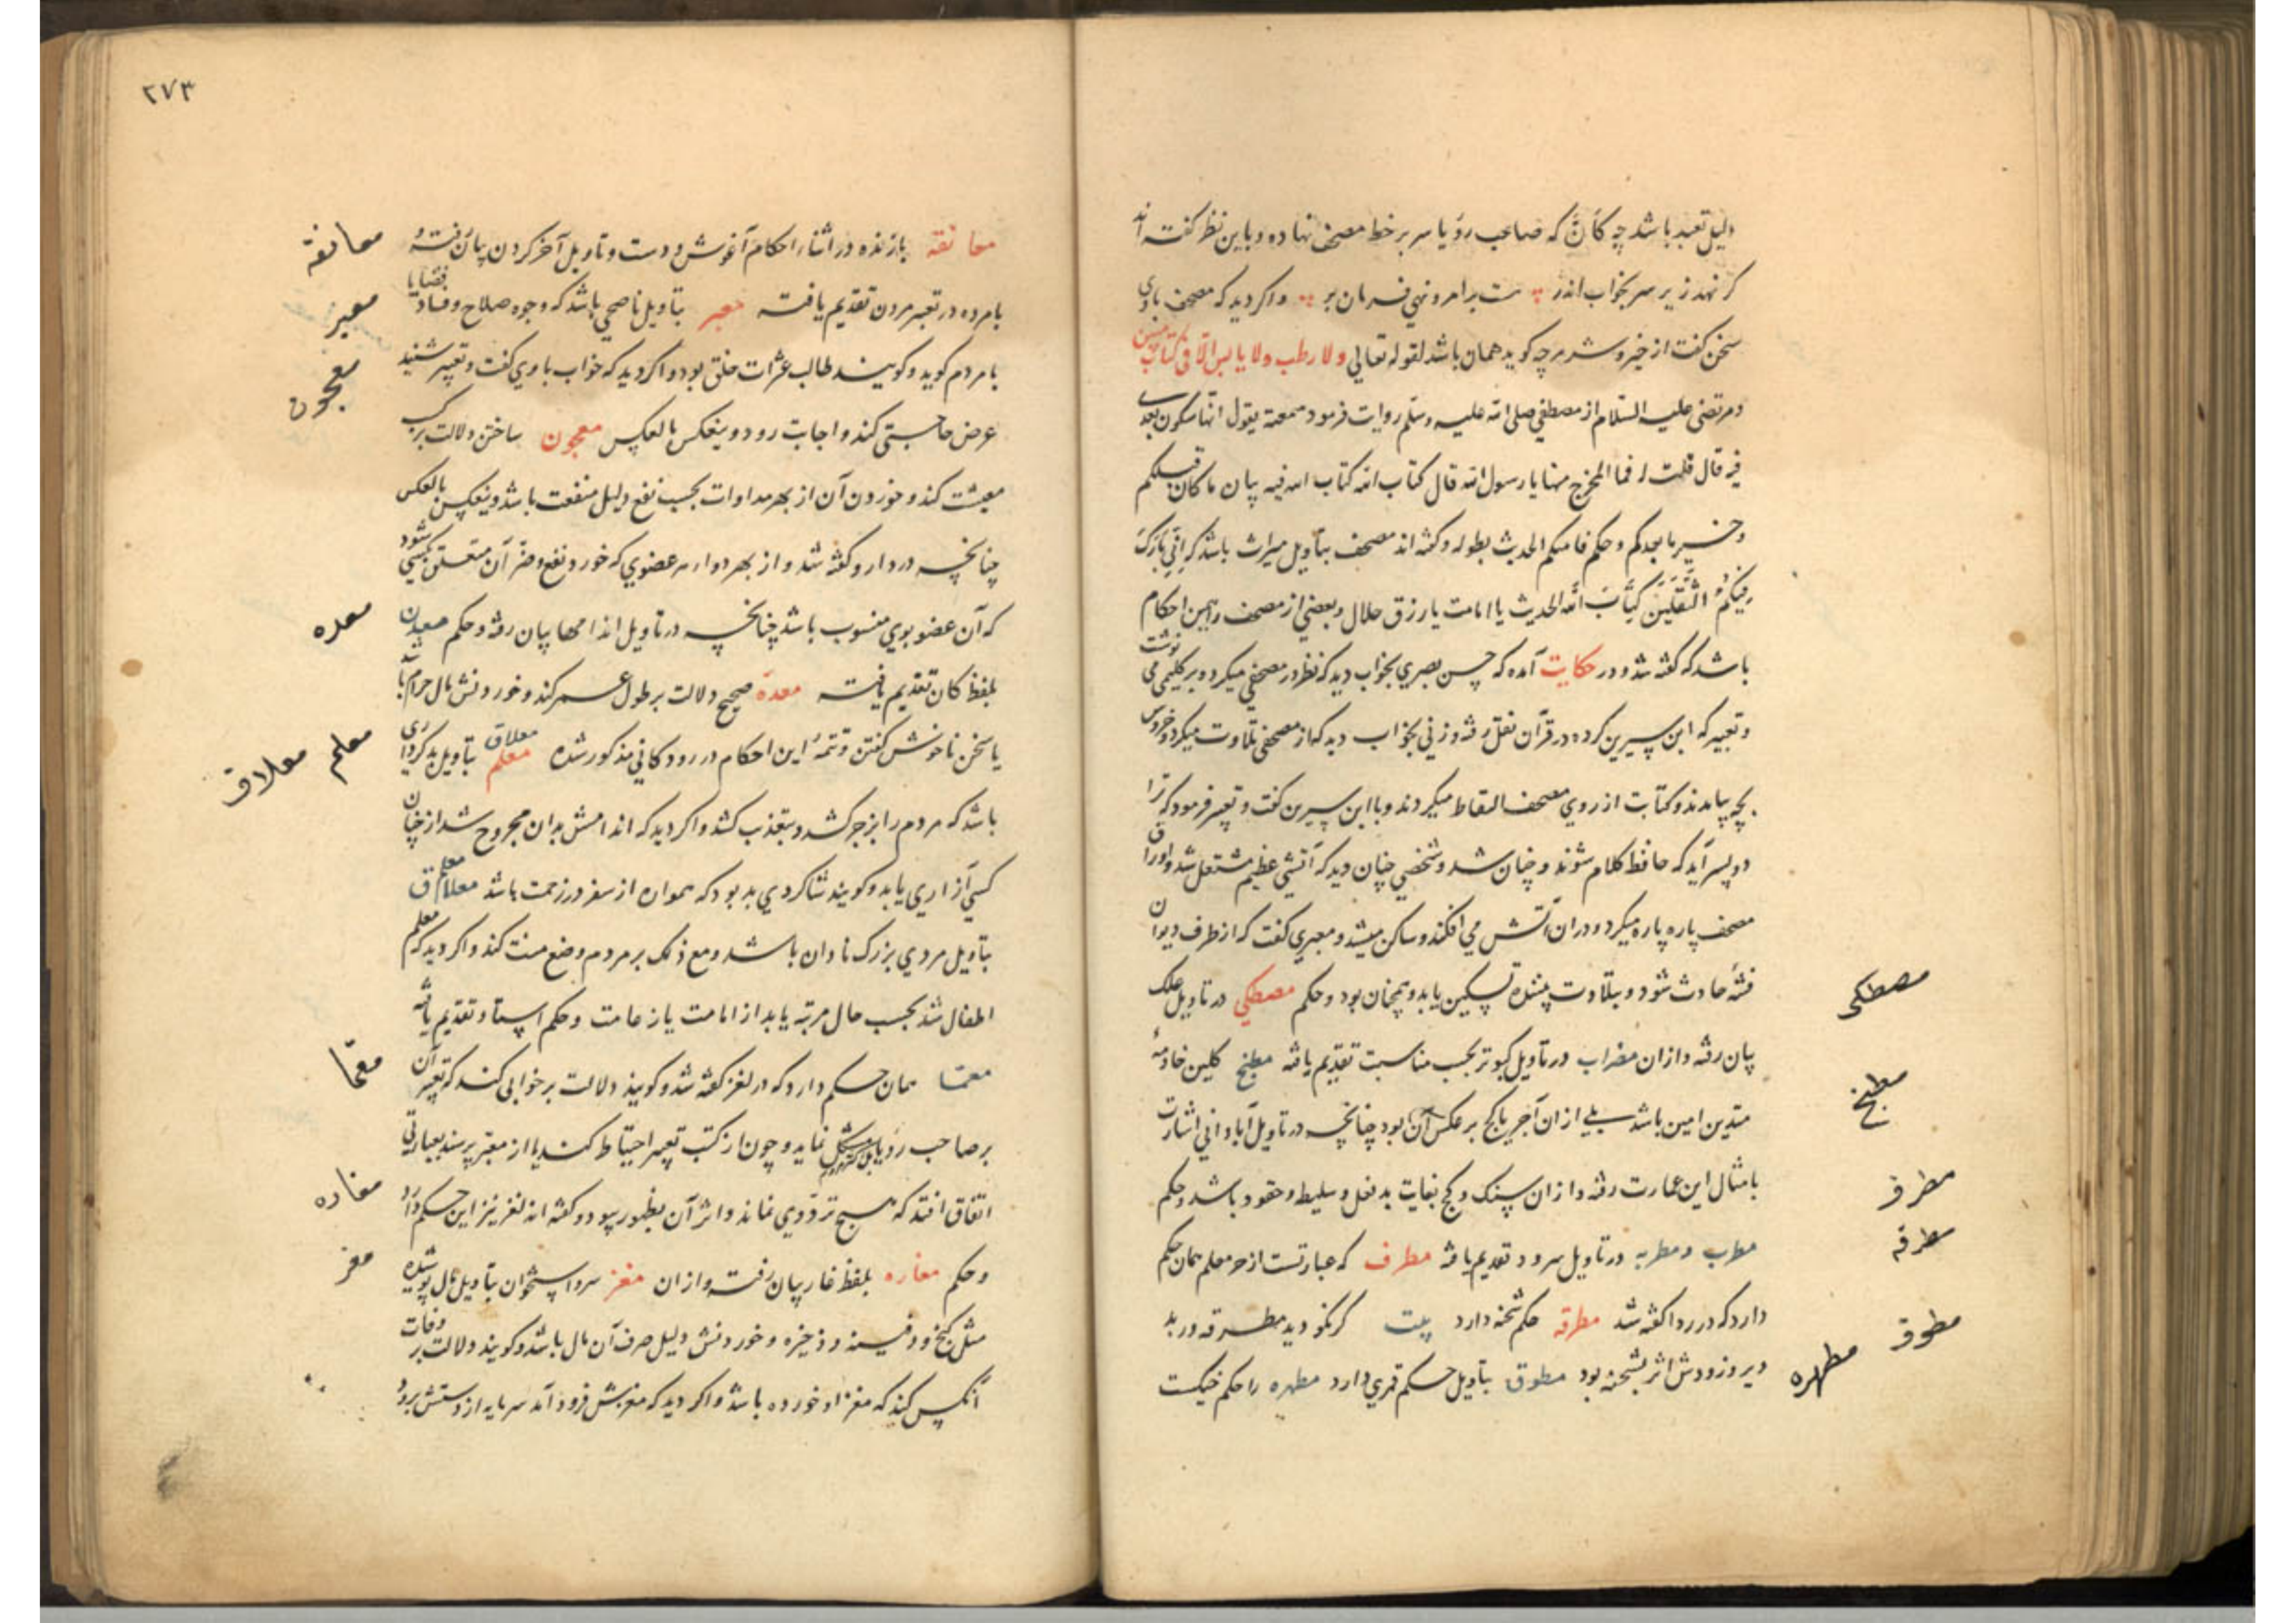 دلیل تعبد باشد چه کانّ که صاحب رؤیا سر بر خط مصحف نهاده و باین نظر گفته اند
کر نهد زیر سر بخواب اندر ست بر امر و نهی فرمان بر واکر دید که مصحف باوی
سخن کفت از خیر و شر هر چه کوید همان باشد لقوله تعالی ولا رطب ولا یابس الّا فی کتاب مبین
و مرتضی علیه السّلام از مصطفی صلی الله علیه وسلّم روایت فرمود سمعته یقول انّها ستکون بعدی
قال قلت له فما المخرج منها یا رسول الله قال کتاب الله کتاب الله فیه بیان ما کان قبلکم
وخبر ما بعدکم وحکم فیما بینکم الحدیث بطوله و کفته اند مصحف بتأویل میراث باشد که اِنّی تارک
فیکم الثّقلین کتاب الله الحدیث یا امانت یا رزق حلال و بعضی از مصحف را همین احکام
باشد که کفته شد و در حکایت آمده که حسن بصری بخواب دید که نظر در مصحفی میکرد و بر کلیمی می نوشت
و تعبیر که ابن سیرین کرده در قرآن نقل رفته و زنی بخواب دید که از مصحفی تلاوت میکرد و خروس
بچه بیامدند و کتابت از روی مصحف التقاط میکردند و با ابن سیرین کفت و تعبیر فرمود که ترا
دو پسر آید که حافظ کلام شوند و چنان شد و شخصی چنان دید که آتشی عظیم مشتعل شد و اوراق
مصحف پاره پاره میکرد و در ان آتش می افکند و ساکن میشد و معبری کفت که از طرف دیوان
فتنهٔ حادث شود و بتلاوت بیننده تسکین یابد و همچنان بود و حکم مصطکی در تأویل علک
بیان رفته و از ان مضراب در تأویل کبوتر بحسب مناسبت تقدیم یافته مطبخ کلین خادمهٔ
متدین امین باشد بلی از ان آجر یا کج بر عکس آن بود چنانچه در تأویل آبادانی اشارت
بامثال این عبارت رفته و از ان سنک و کج بغایت بدفعل و سلیط و حقود باشد و حکم
مطرب و مطربه در تأویل سرود تقدیم یافته مطرف که عبارتست از معلم همان حکم
دارد که در ردا کفته شد مطرقه حکم شحنه دارد بیت کر نکو دید مطرقه در بد
دیر و زودش اثر بشحنه بود مطوق بتأویل حکم قمری دارد مطهره را حکم خیکست
مصطکی
مطبخ
مطرف
مطرقه
مطوق
مطهره
٢٧٣
معانقه بازنده در اثناء احکام آغوش و دست و تأویل آخر کردن بیان رفته و
بامرده در تعبیر مردن تقدیم یافته معبر بتأویل ناصحی باشد که وجوه صلاح و فساد قضایا
بامردم کوید و کویند طالب عثرات خلق بود و اکر دید که خواب باوی کفت و تعبیر شنید
عرض حاجتی کند و اجابت رود و ینعکس بالعکس معجون ساختن دلالت بر کسب
معیشت کند و خوردن آن از بهر مداوات بحسب نفع دلیل منفعت باشد و ینعکس بالعکس
چنانچه در دارو کفته شد و از بهر دواء هر عضوی که خورد نفع و ضرّ آن متعلق بکسی شود
که آن عضو بوی منسوب باشد چنانچه در تأویل اندامها بیان رفته و حکم معدن
بلفظ کان تقدیم یافته معده صحیح دلالت بر طول عمر کند و خوردنش مال حرام باشد
یا سخن ناخوش کفتن و تتمّهٔ این احکام در رودکانی مذکور شده معلاق معلم بتأویل بدکرداری
باشد که مردم را بزجر کشد و بتعذب کشد و اکر دید که اندامش بدان مجروح شد از چنان
کسی آزاری یابد و کویند شاکردی بد بود که همواره از سفر در زحمت باشد معلاق معلم
بتأویل مردی بزرک نادان باشد و مع ذلک بر مردم وضع منت کند و اکر دید که معلم
اطفال شد بحسب حال مرتبه یابد از امامت یا زعامت و حکم استاد تقدیم یافته
معمّا همان حکم دارد که در لغز کفته شد و کویند دلالت بر خوابی کند که تعبیر آن
بر صاحب رؤیا مشکل نماید و چون از کتب تعبیر احتیاط کند یا از معبّر پرسد بعبارتی
اتفاق افتد که هیچ تردّدی نماند و اثر آن بظهور پیوندد و کفته اند لغز نیز این حکم دارد
و حکم مغاره بلفظ غار بیان رفت و از ان مغز سر و استخوان بتأویل مال پوشیده
مثل کنج و دفینه و ذخیره و خوردنش دلیل صرف آن مال باشد و کویند دلالت بر وفات
آنکس کند که مغز او خورده باشد و اکر دید که مغزش فرود آمد سرمایه از دستش برود
معانقه
معبر
معجون
معده
معلم
معلاق
معمّا
مغاره
مغز